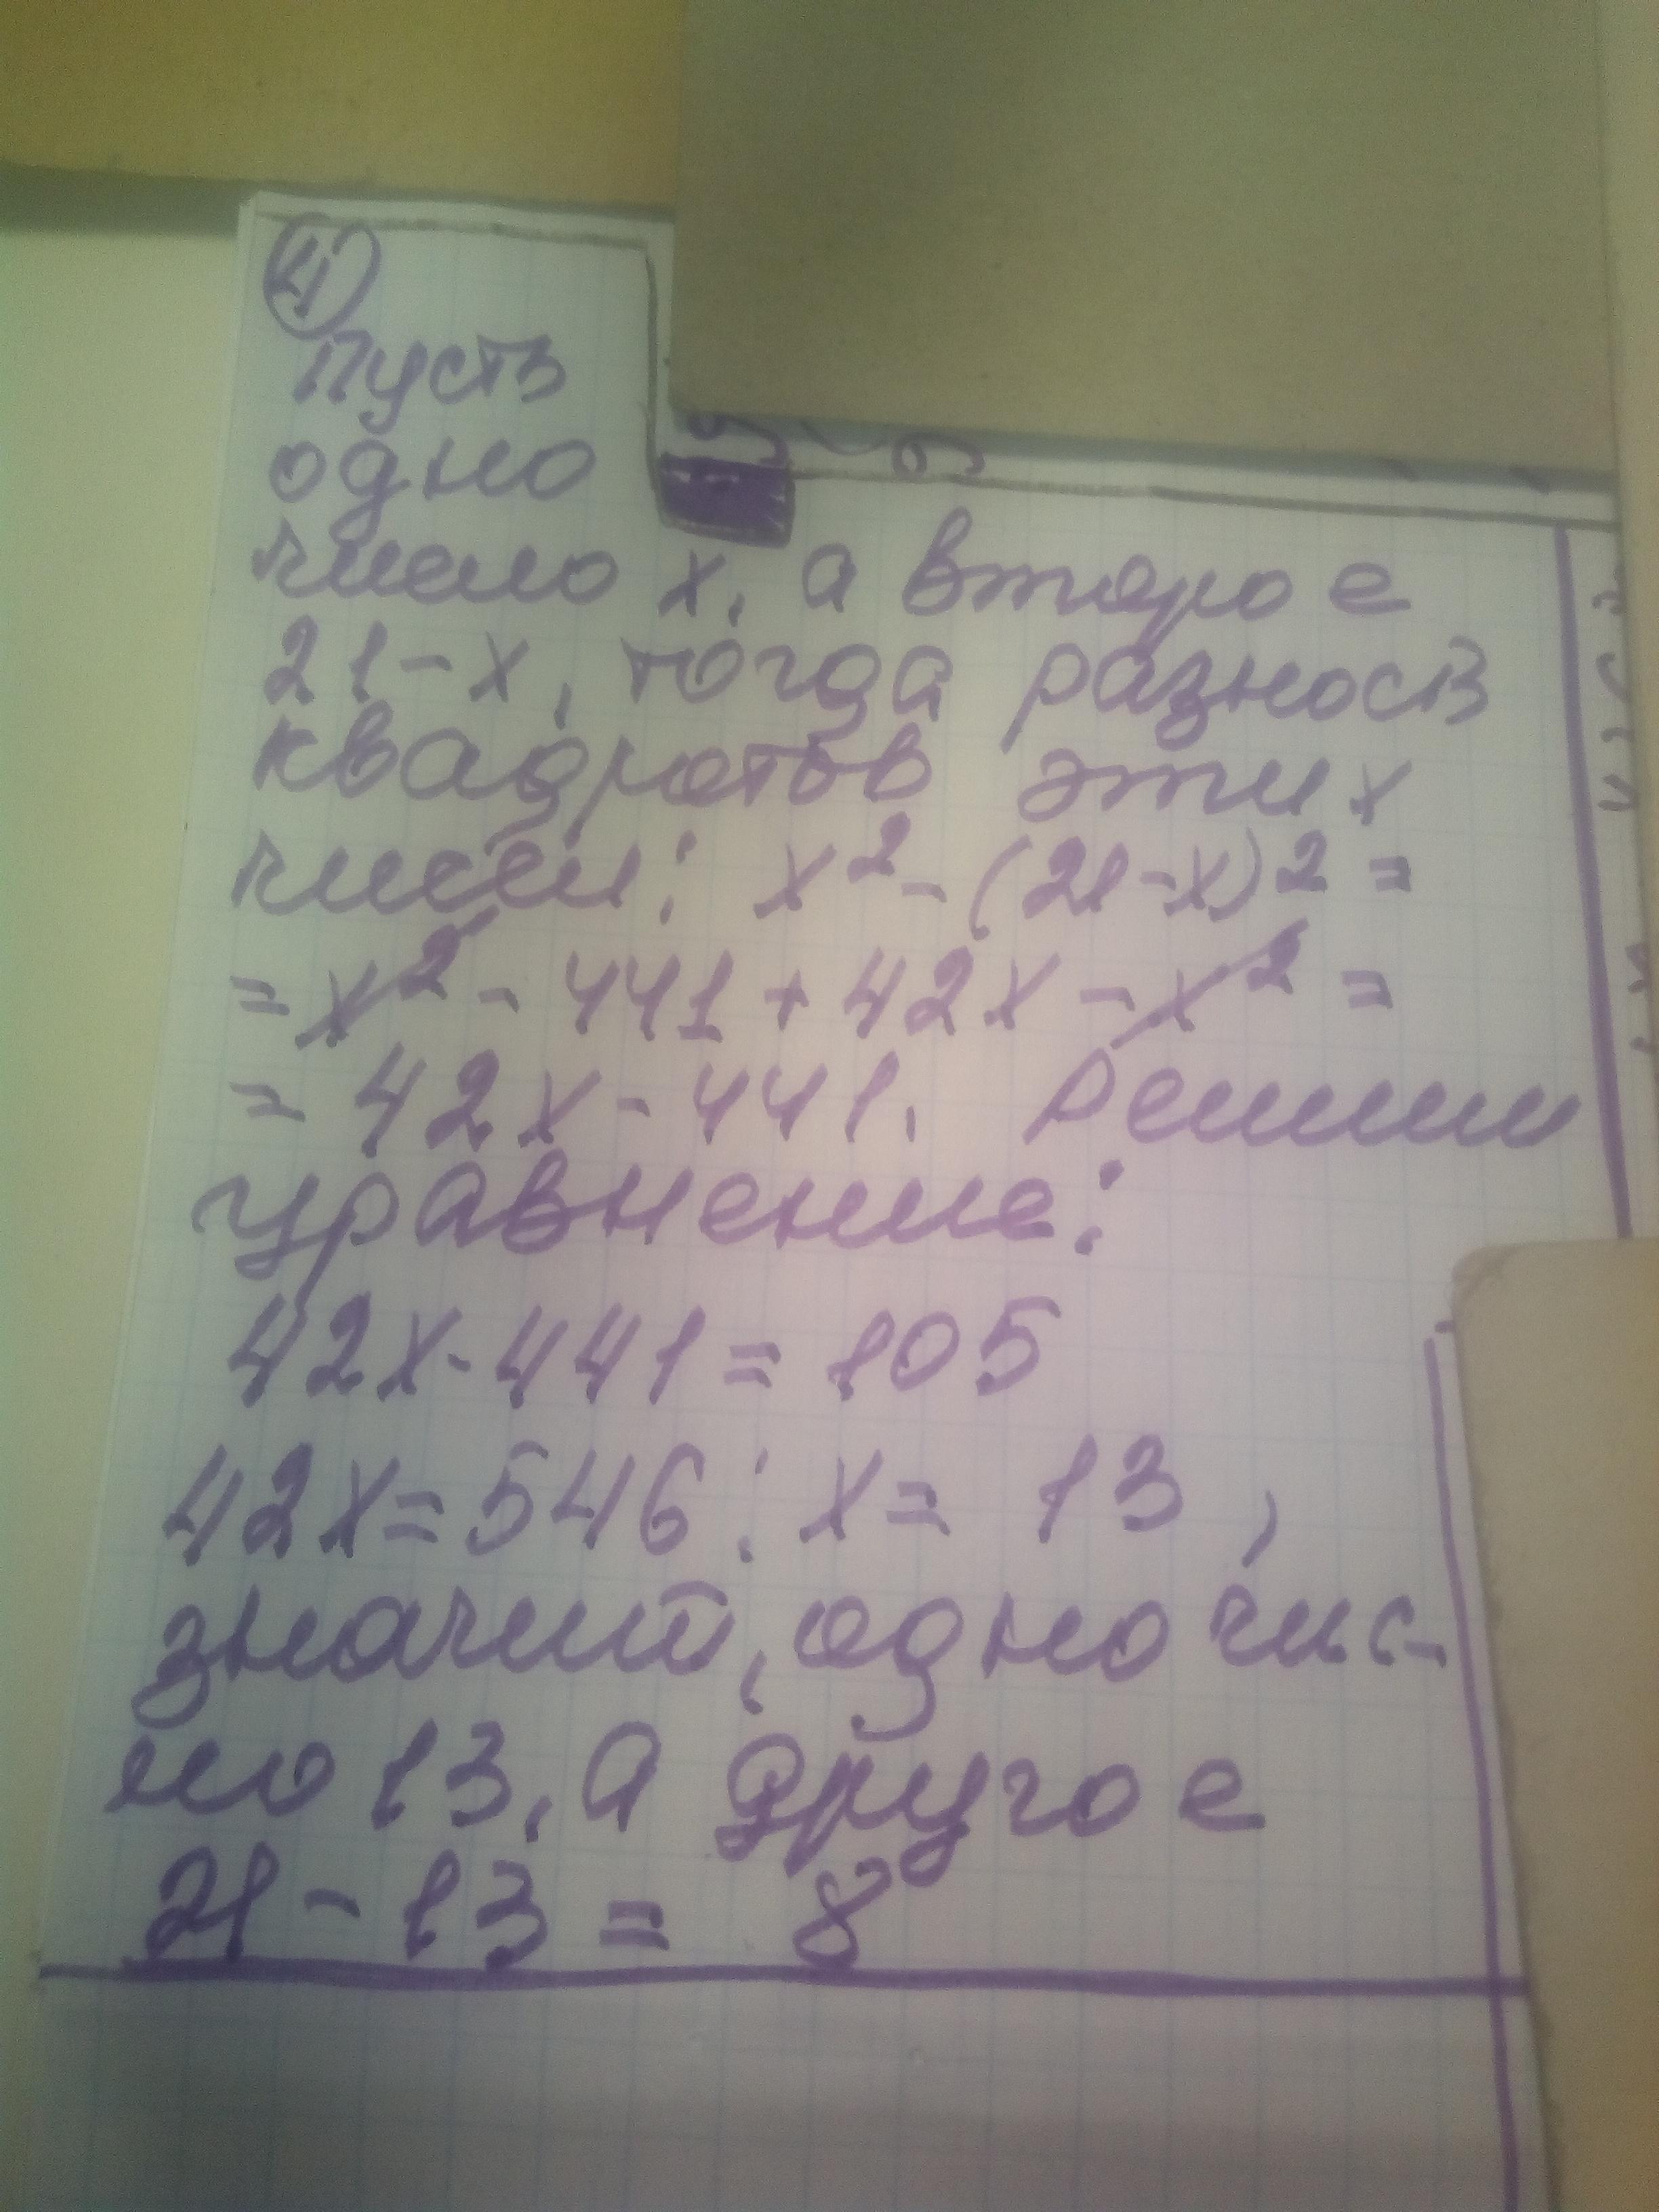 4
Пусть
одно
число x, а второе
21-x, тогда разность
квадратов этих
чисел: x² - (21-x)² =
= x² - 441 + 42x - x² =
= 42x - 441. Решим
уравнение:
42x - 441 = 105
42x = 546; x = 13,
значит, одно чис-
ло 13, а другое
21 - 13 = 8